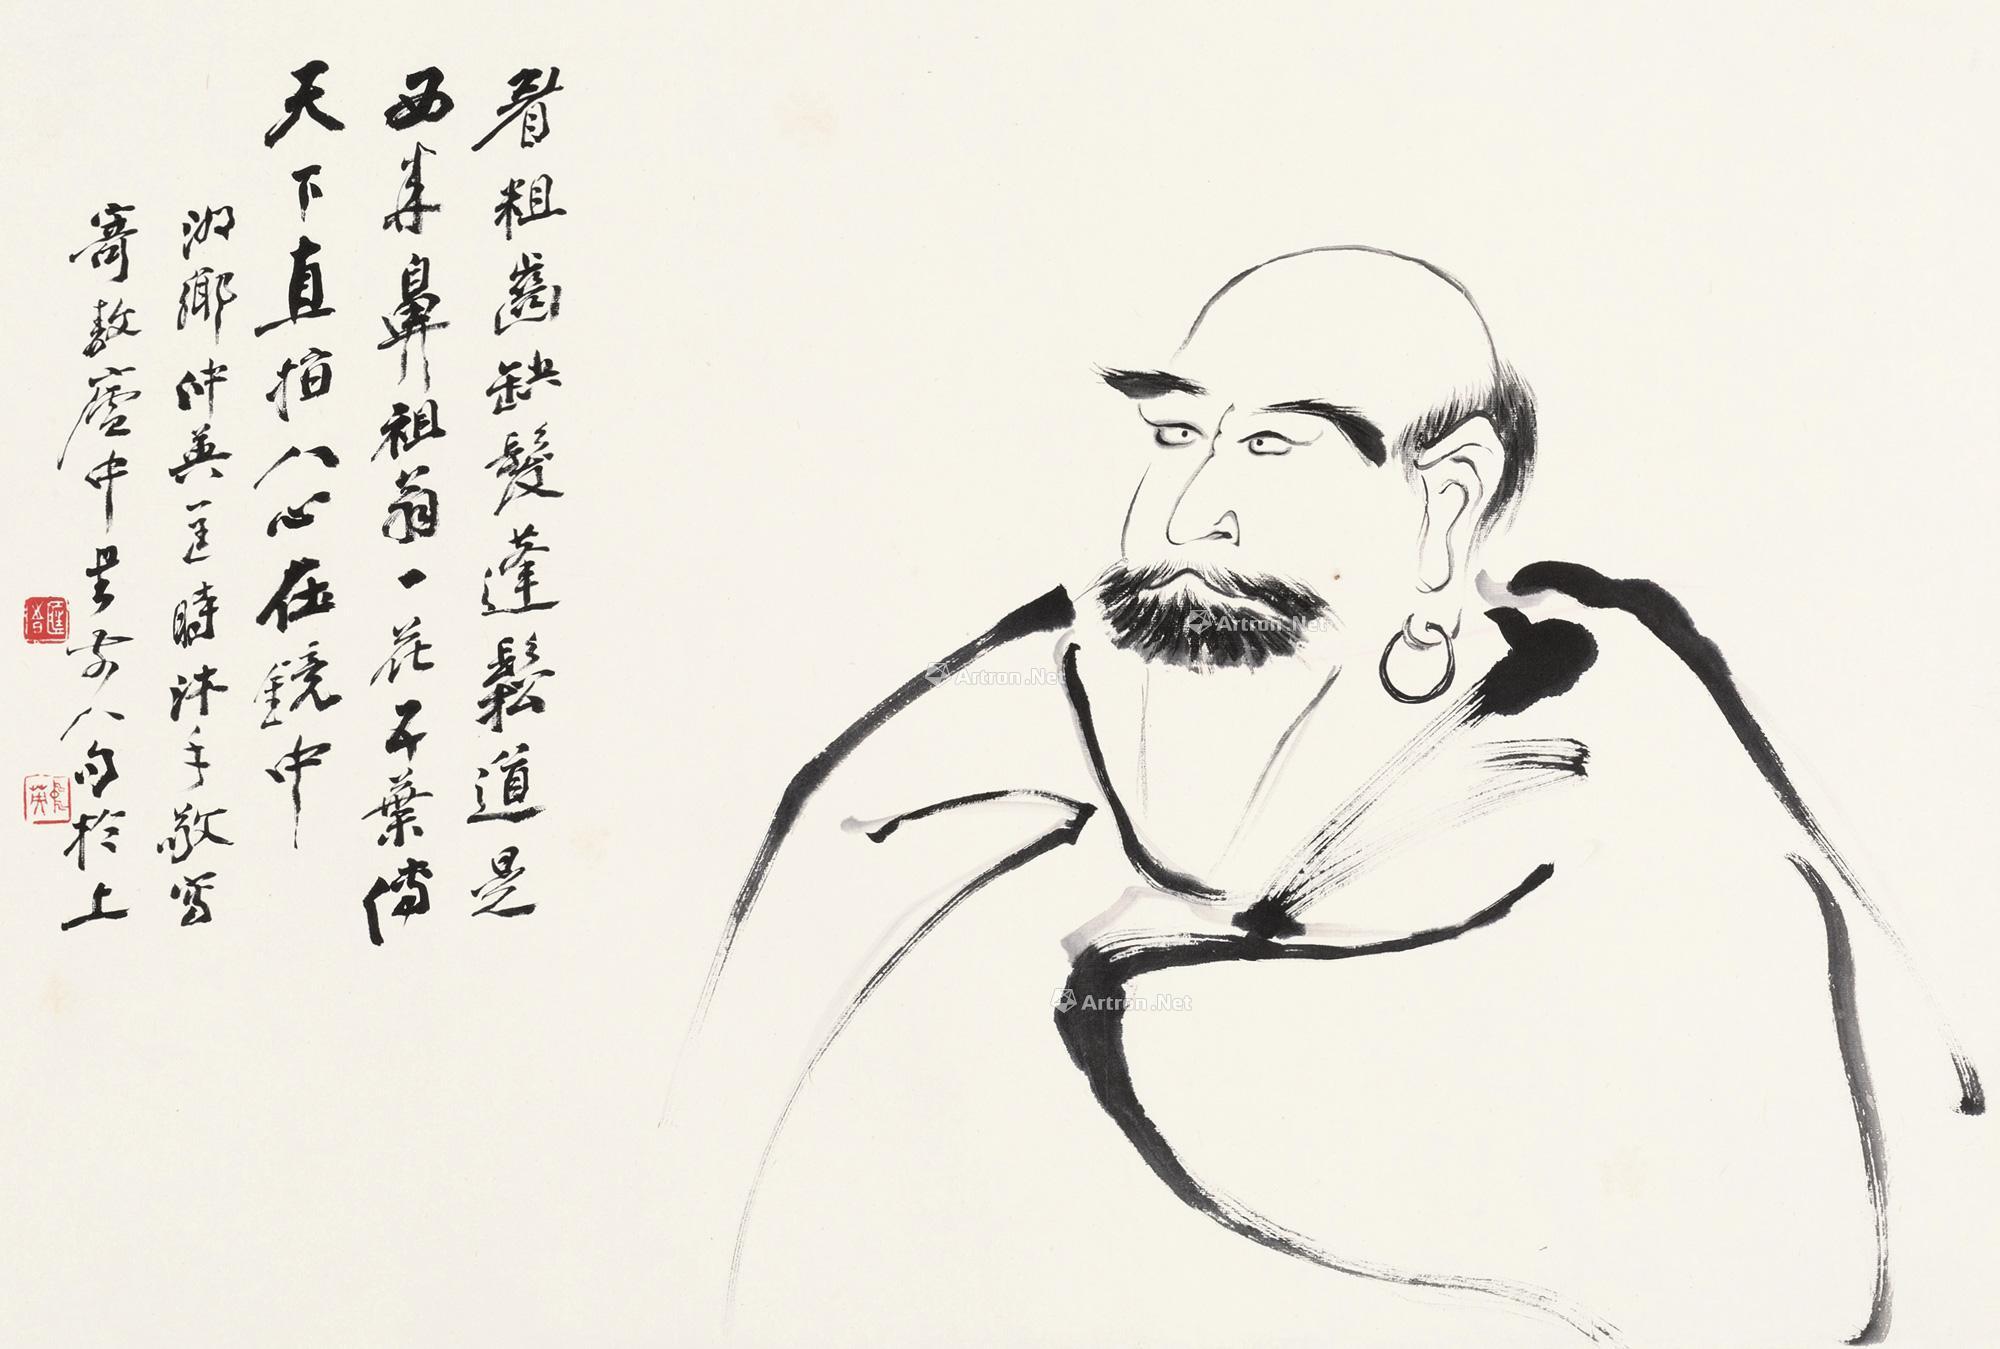 眉粗齒缺髮蓬鬆道是
西來鼻祖翁一花五葉傳
天下直指人心在鏡中
鄉仲英匡時沐手敬寫
寄敖廬中人句於上
Artron.Net
Artron.Net
Artron.Net